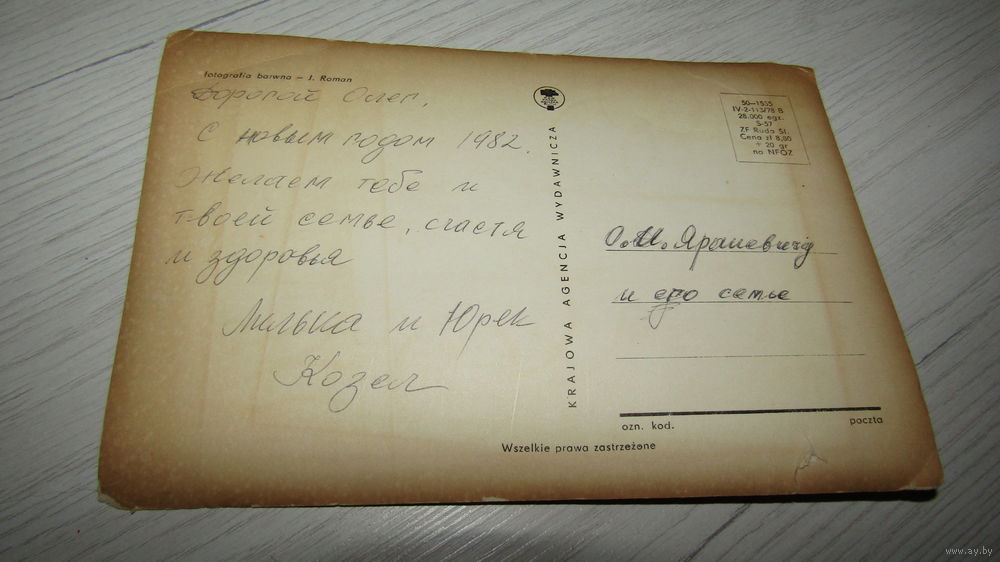 fotografia barwna – J. Roman
Дорогой Олег,
С новым годом 1982.
Желаем тебе и
твоей семье, счастя
и здоровья
Милька и Юрек
Козел
KRAJOWA AGENCJA WYDAWNICZA
50-1555
IV-2-113/78 B
28.000 egz.
S-57
ZF Ruda Śl.
Cena zł 8,80
+ 20 gr
na NFOZ
О.И.
и его семье
ozn. kod.
poczta
Wszelkie prawa zastrzeżone
www.ay.by